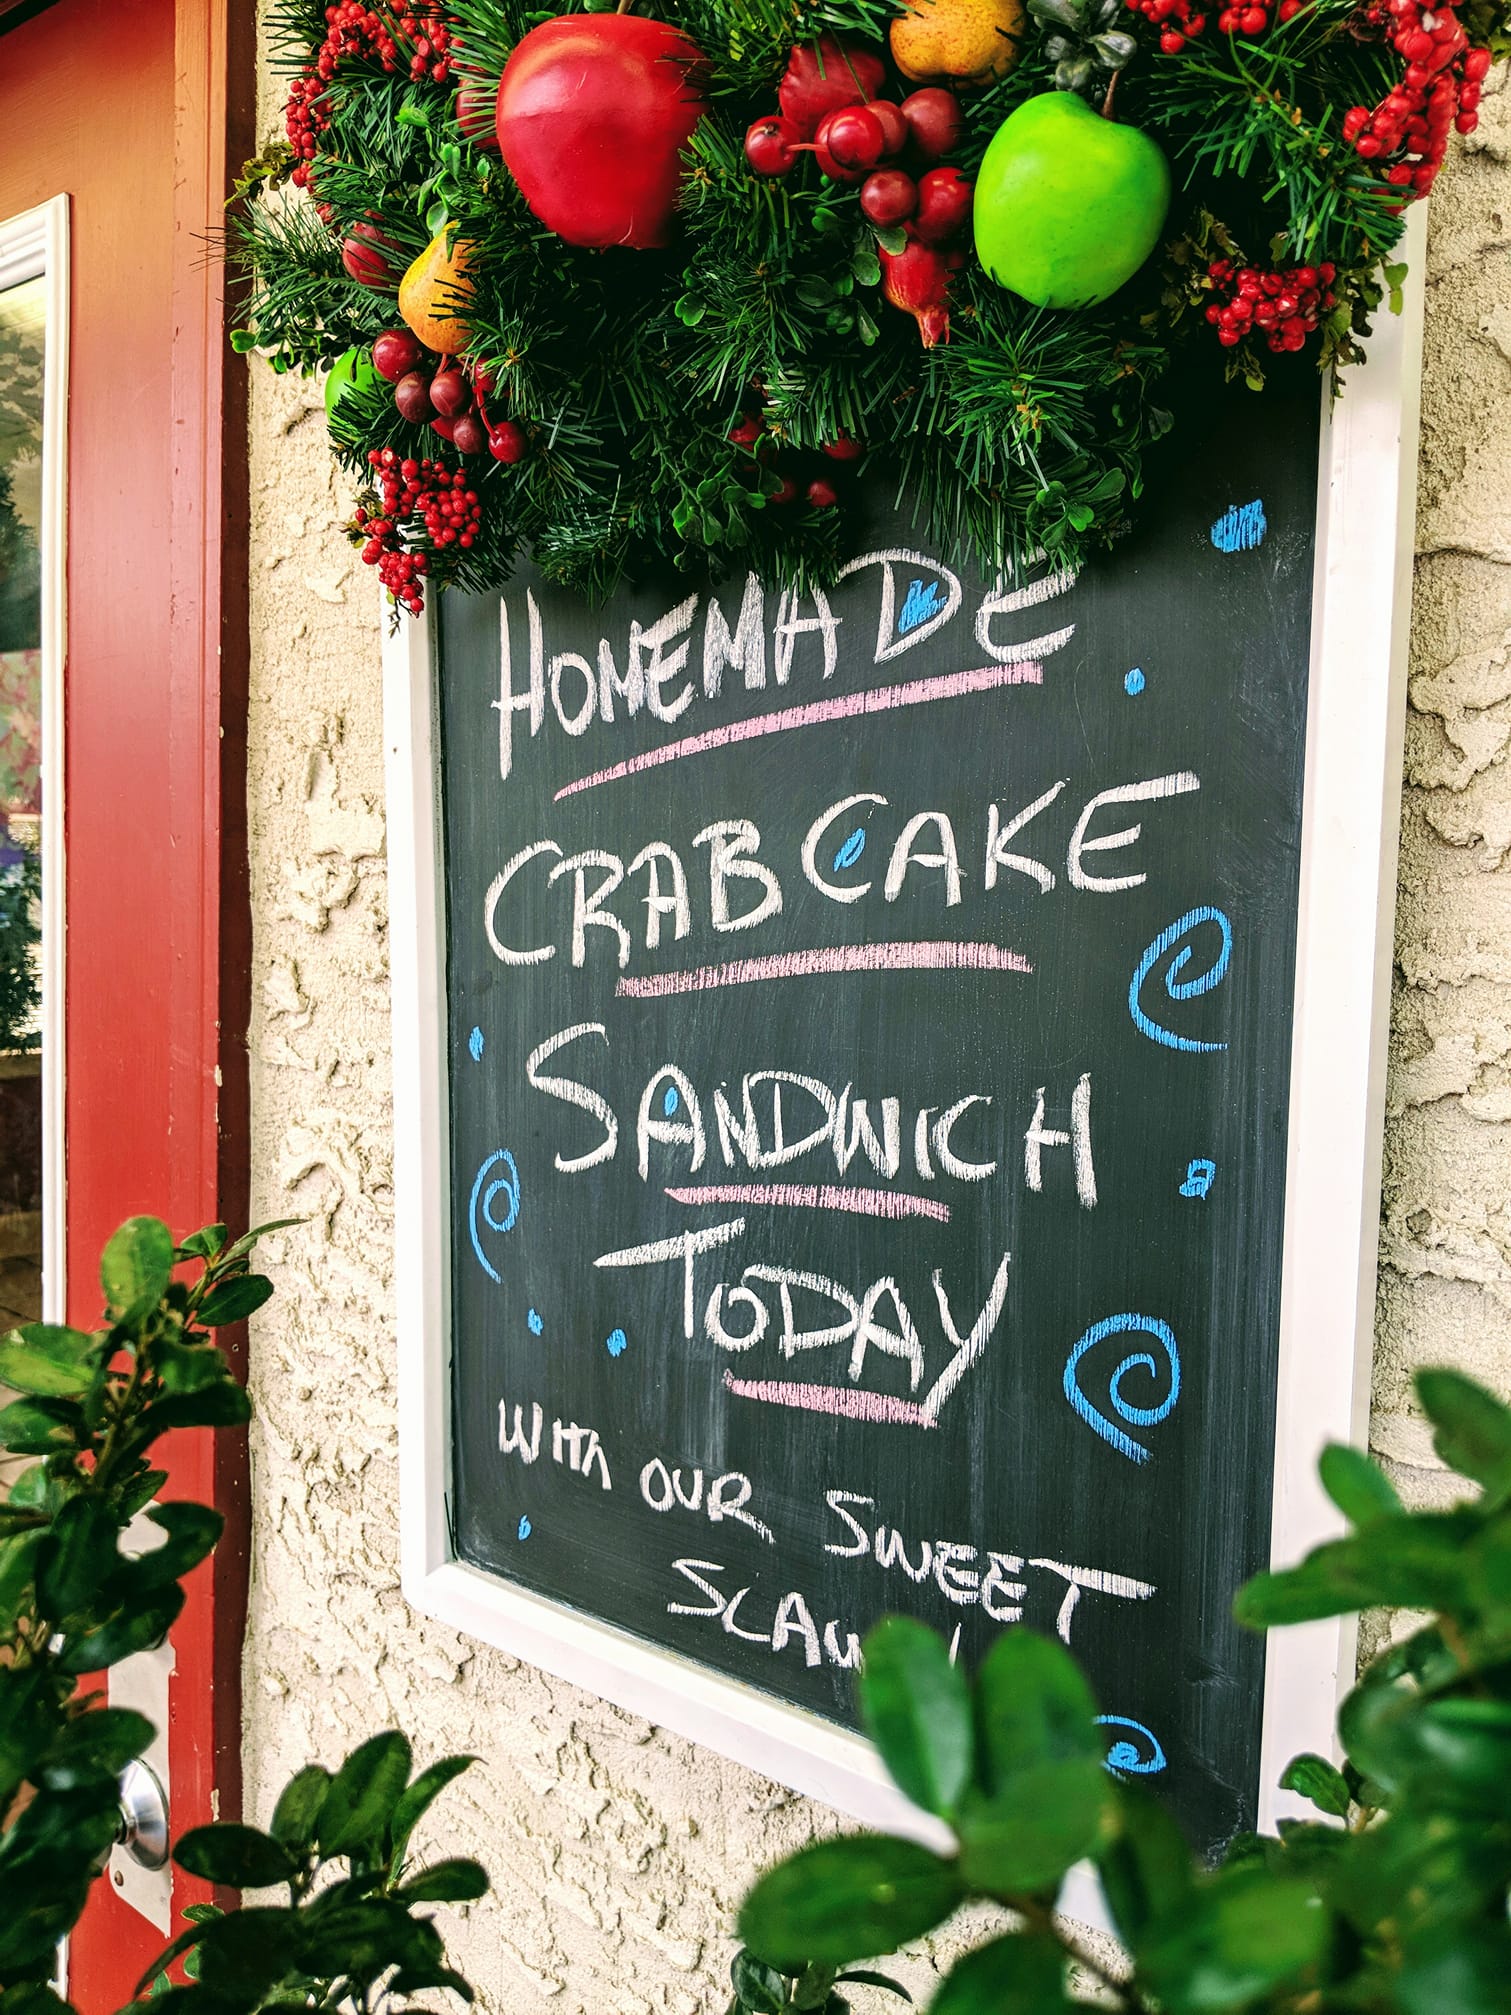 HOMEMADE
CRAB CAKE
SANDWICH
TODAY
WITH OUR SWEET
SLAW!